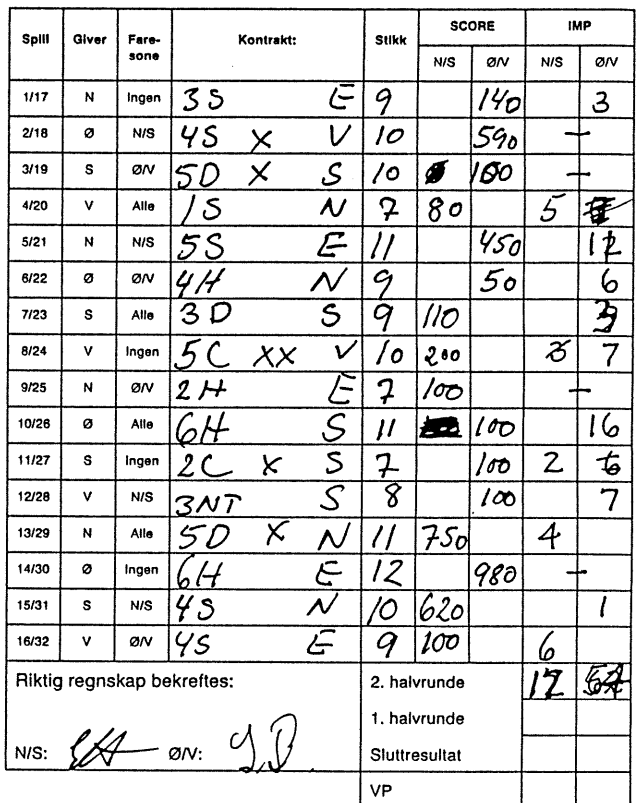 Spill Giver Fare-sone Kontrakt: Stikk SCORE IMP
N/S Ø/V N/S Ø/V
1/17 N Ingen 3S E 9 140 3
2/18 Ø N/S 4S X V 10 590 —
3/19 S Ø/V 5D X S 10 100 —
4/20 V Alle 1S N 7 80 5
5/21 N N/S 5S E 11 450 12
6/22 Ø Ø/V 4H N 9 50 6
7/23 S Alle 3D S 9 110
8/24 V Ingen 5C XX V 10 200 7
9/25 N Ø/V 2H E 7 100 —
10/26 Ø Alle 6H S 11 100 16
11/27 S Ingen 2C X S 7 100 2
12/28 V N/S 3NT S 8 100 7
13/29 N Alle 5D X N 11 750 4
14/30 Ø Ingen 6H E 12 980 —
15/31 S N/S 4S N 10 620 1
16/32 V Ø/V 4S E 9 100 6
Riktig regnskap bekreftes: 2. halvrunde 17
1. halvrunde
N/S: Ø/V: Sluttresultat
VP